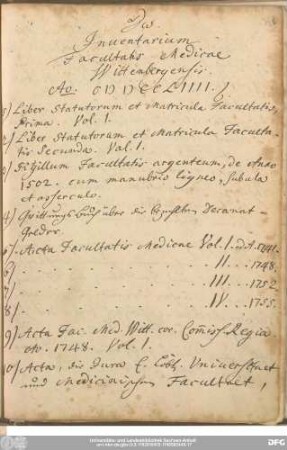 Inventarium
Facultatis Medicae
Wittenbergensis
Ao.
1) Liber Statutorum et Matricula Facultatis,
Prima. Vol. 1.
2) Liber Statutorum et Matricula Faculta-
tis Secunda. Vol. 1.
3) Sigillum Facultatis argenteum, de Anno
1502. cum manubrio ligneo, subula
et asserculo.
4) Quittungs Buch über die Decanat-
5) Acta Facultatis Medicae Vol. I.
6) . . . . . . II . . . 1748.
7) . . . . . . III . . . 1752.
8) . . . . . . IV . . . 1755.
9) Acta Fac. Med. Witt. cor. Comiss. Regia
Ao. 1748. Vol. 1.
10) Acta, die Jura E. Löbl. Universitaet
und Medicinischen Facultaet,